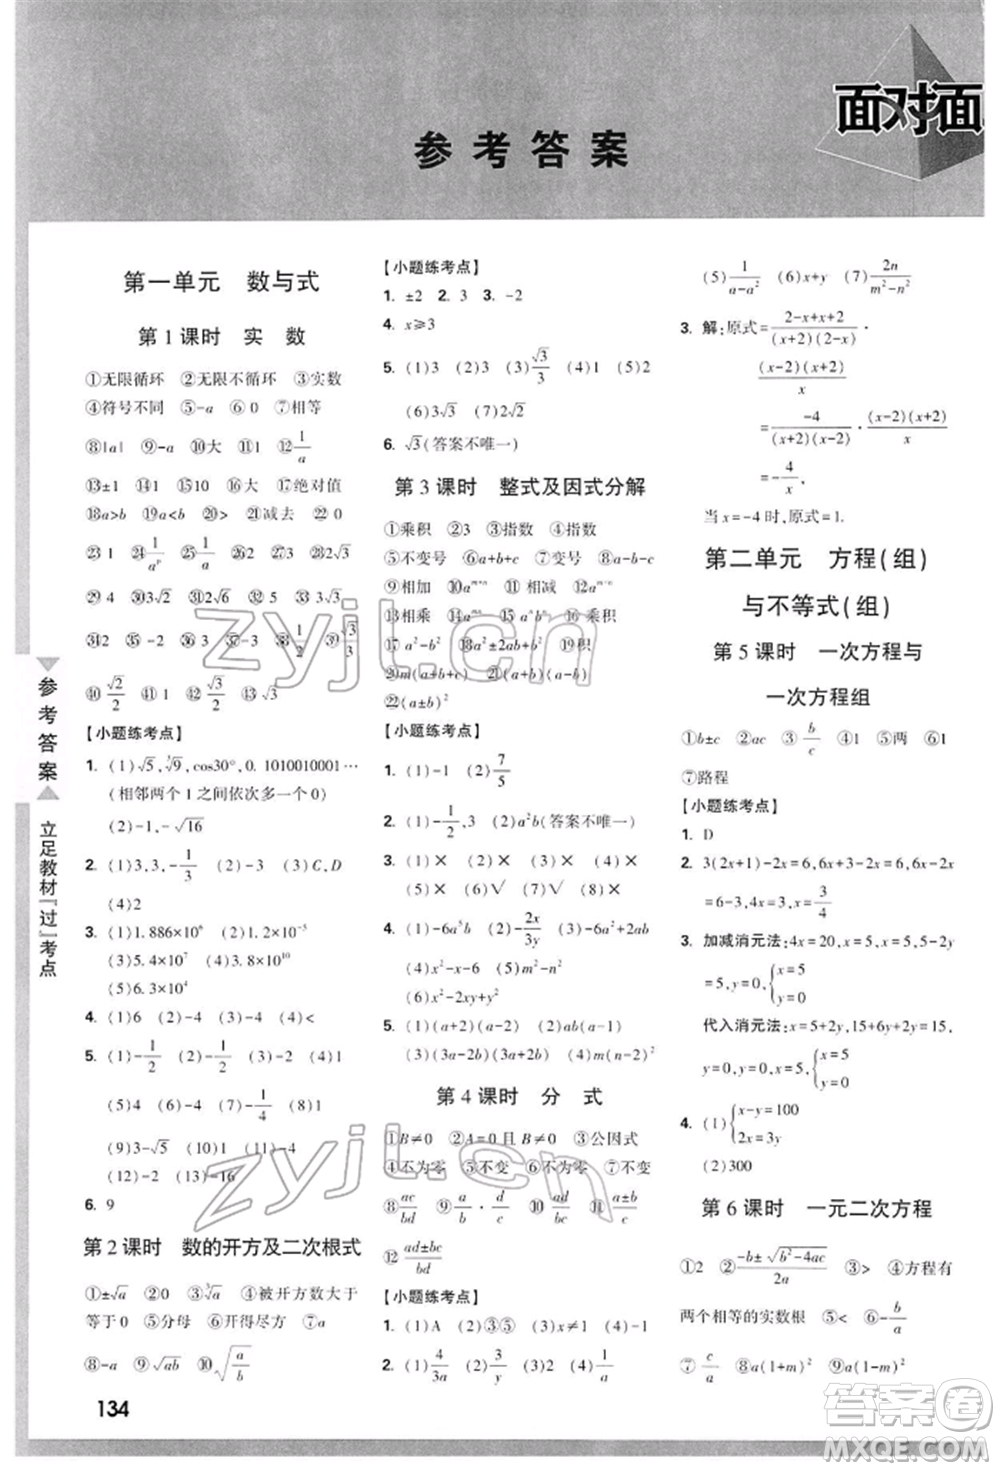 面对面
参考答案
第一单元 数与式
第1课时 实 数
①无限循环 ②无限不循环 ③实数
④符号不同 ⑤-a ⑥0 ⑦相等
⑧|a| ⑨-a ⑩大 ⑪1 ⑫1/a
⑬±1 ⑭大 ⑮10 ⑯大 ⑰绝对值
⑱a>b ⑲a<b ⑳> ㉑减去 ㉒0
㉓1 ㉔1/aᵖ
㉙4 ㉚3√2
㉞2 ㉟-2
㊵√2/2 ㊶√3
【小题练考点】
1. (1)√5,∛9,cos30°,0.1010010001…
(相邻两个1之间依次多一个0)
(2)-1,-√16
2. (1)3,3,-1/3 (2)3 (3)C,D
(4)2
3. (1)1.886×10⁶ (2)1.2×10⁻⁵
(3)5.4×10⁷ (4)3.8×10¹⁰
(5)6.3×10⁴
4. (1)6 (2)-4 (3)-4 (4)<
5. (1)-1/2 (2)-1/2 (3)-1/2 (4)1
(5)4 (6)2 (7)-1/4 (8)1
(9)3-√5 (10)1 (11)4
(12)-2 (13)-2
6. 9
第2课时 数的开方及二次根式
①±√a ②0 ③∛a ④被开方数大于
等于0 ⑤分母 ⑥开得尽方 ⑦a
⑧-a ⑨√ab ⑩√(a/b)
134
【小题练考点】
1. ±2 2. 3 3. -2
4. x≥3
5. (1)3 (2)3 (3)√3/3 (4)1 (5)2
(6)3√3 (7)2√2
6. √3(答案不唯一)
第3课时 整式及因式分解
①乘积 ②3 ③指数 ④指数
⑤不变号 ⑥a+b+c ⑦变号 ⑧a-b-c
⑨相加 ⑩aᵐ⁺ⁿ ⑪相减 ⑫aᵐ⁻ⁿ
⑬相乘 ⑭aᵐⁿ
⑰a²-b² ⑱a²±2ab+b²
⑳m(a+b+c) ㉑(a+b)(a-b)
㉒(a±b)²
【小题练考点】
1. (1)-1 (2)7/5
2. (1)-1/2,3 (2)a²b(答案不唯一)
3. (1)× (2)× (3)× (4)×
(5)× (6)√ (7)√ (8)×
4. (1)-6a⁵b (2)-2x/3y (3)-6a²+2ab
(4)x²-x-6 (5)m²-n²
(6)x²-2xy+y²
5. (1)(a+2)(a-2) (2)ab(a-b)
(3)(3a-2b)² (4)m(n-2)²
第4课时 分 式
①B≠0 ②A=0且B≠0 ③公因式
④不为零 ⑤不变 ⑥不为零 ⑦不变
⑧ac/bd ⑨a/b·d/c ⑩ad/bc ⑪(a±b)/c
⑫(ad±bc)/bd
【小题练考点】
1. (1)A (2)③⑤ (3)x≠1 (4)-1
2. (1)4/3a (2)3/y (3)a+b (4)1/a
(5)1/(a-a²) (6)x+y (7)2n/(m²-n²)
3. 解:原式=(2-x+x+2)/((x+2)(2-x))·
(x-2)(x+2)/x
=-4/((x+2)(x-2))·(x-2)(x+2)/x
=-4/x.
当x=-4时,原式=1.
第二单元 方程(组)
与不等式(组)
第5课时 一次方程与
一次方程组
①b±c ②ac ③b/c ④2 ⑤两 ⑥1
⑦路程
【小题练考点】
1. D
2. 3(2x+1)-2x=6,6x+3-2x
=6,6x-2x=6-3,4x=3,x=3/4
3. 加减消元法:4x=20,x=5,5-2y
=5,y=0,{x=5 y=0
代入消元法:x=5+2y,15+6y+2y=15,
y=0,y=0,x=5,{x=5 y=0
4. (1){x-y=100 2x=3y
(2)300
第6课时 一元二次方程
①2 ②(-b±√(b²-4ac))/2a ③> ④方程有
两个相等的实数根 ⑤< ⑥-b/a
⑦c/a ⑧a(1+m)² ⑨a(1-m)²
参考答案
立足教材「过」考点
zyjl.cn
zyjl.cn
答案圈
MXQE.COM